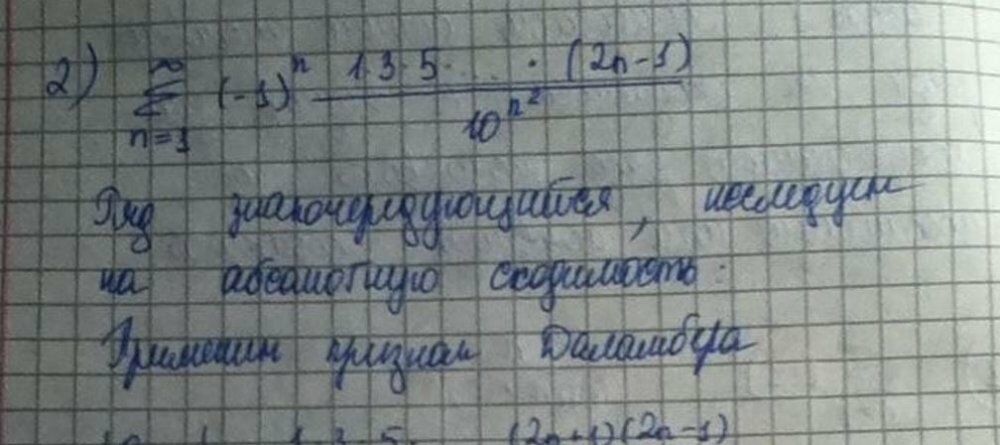 2) ∞ Σ n=1 (-1)^n 1·3·5·...·(2n-1) / 10^n²
Ряд знакочередующийся, исследуем
на абсолютную сходимость:
Применим признак Даламбера
1·3·5 (2n+1)(2n-1)